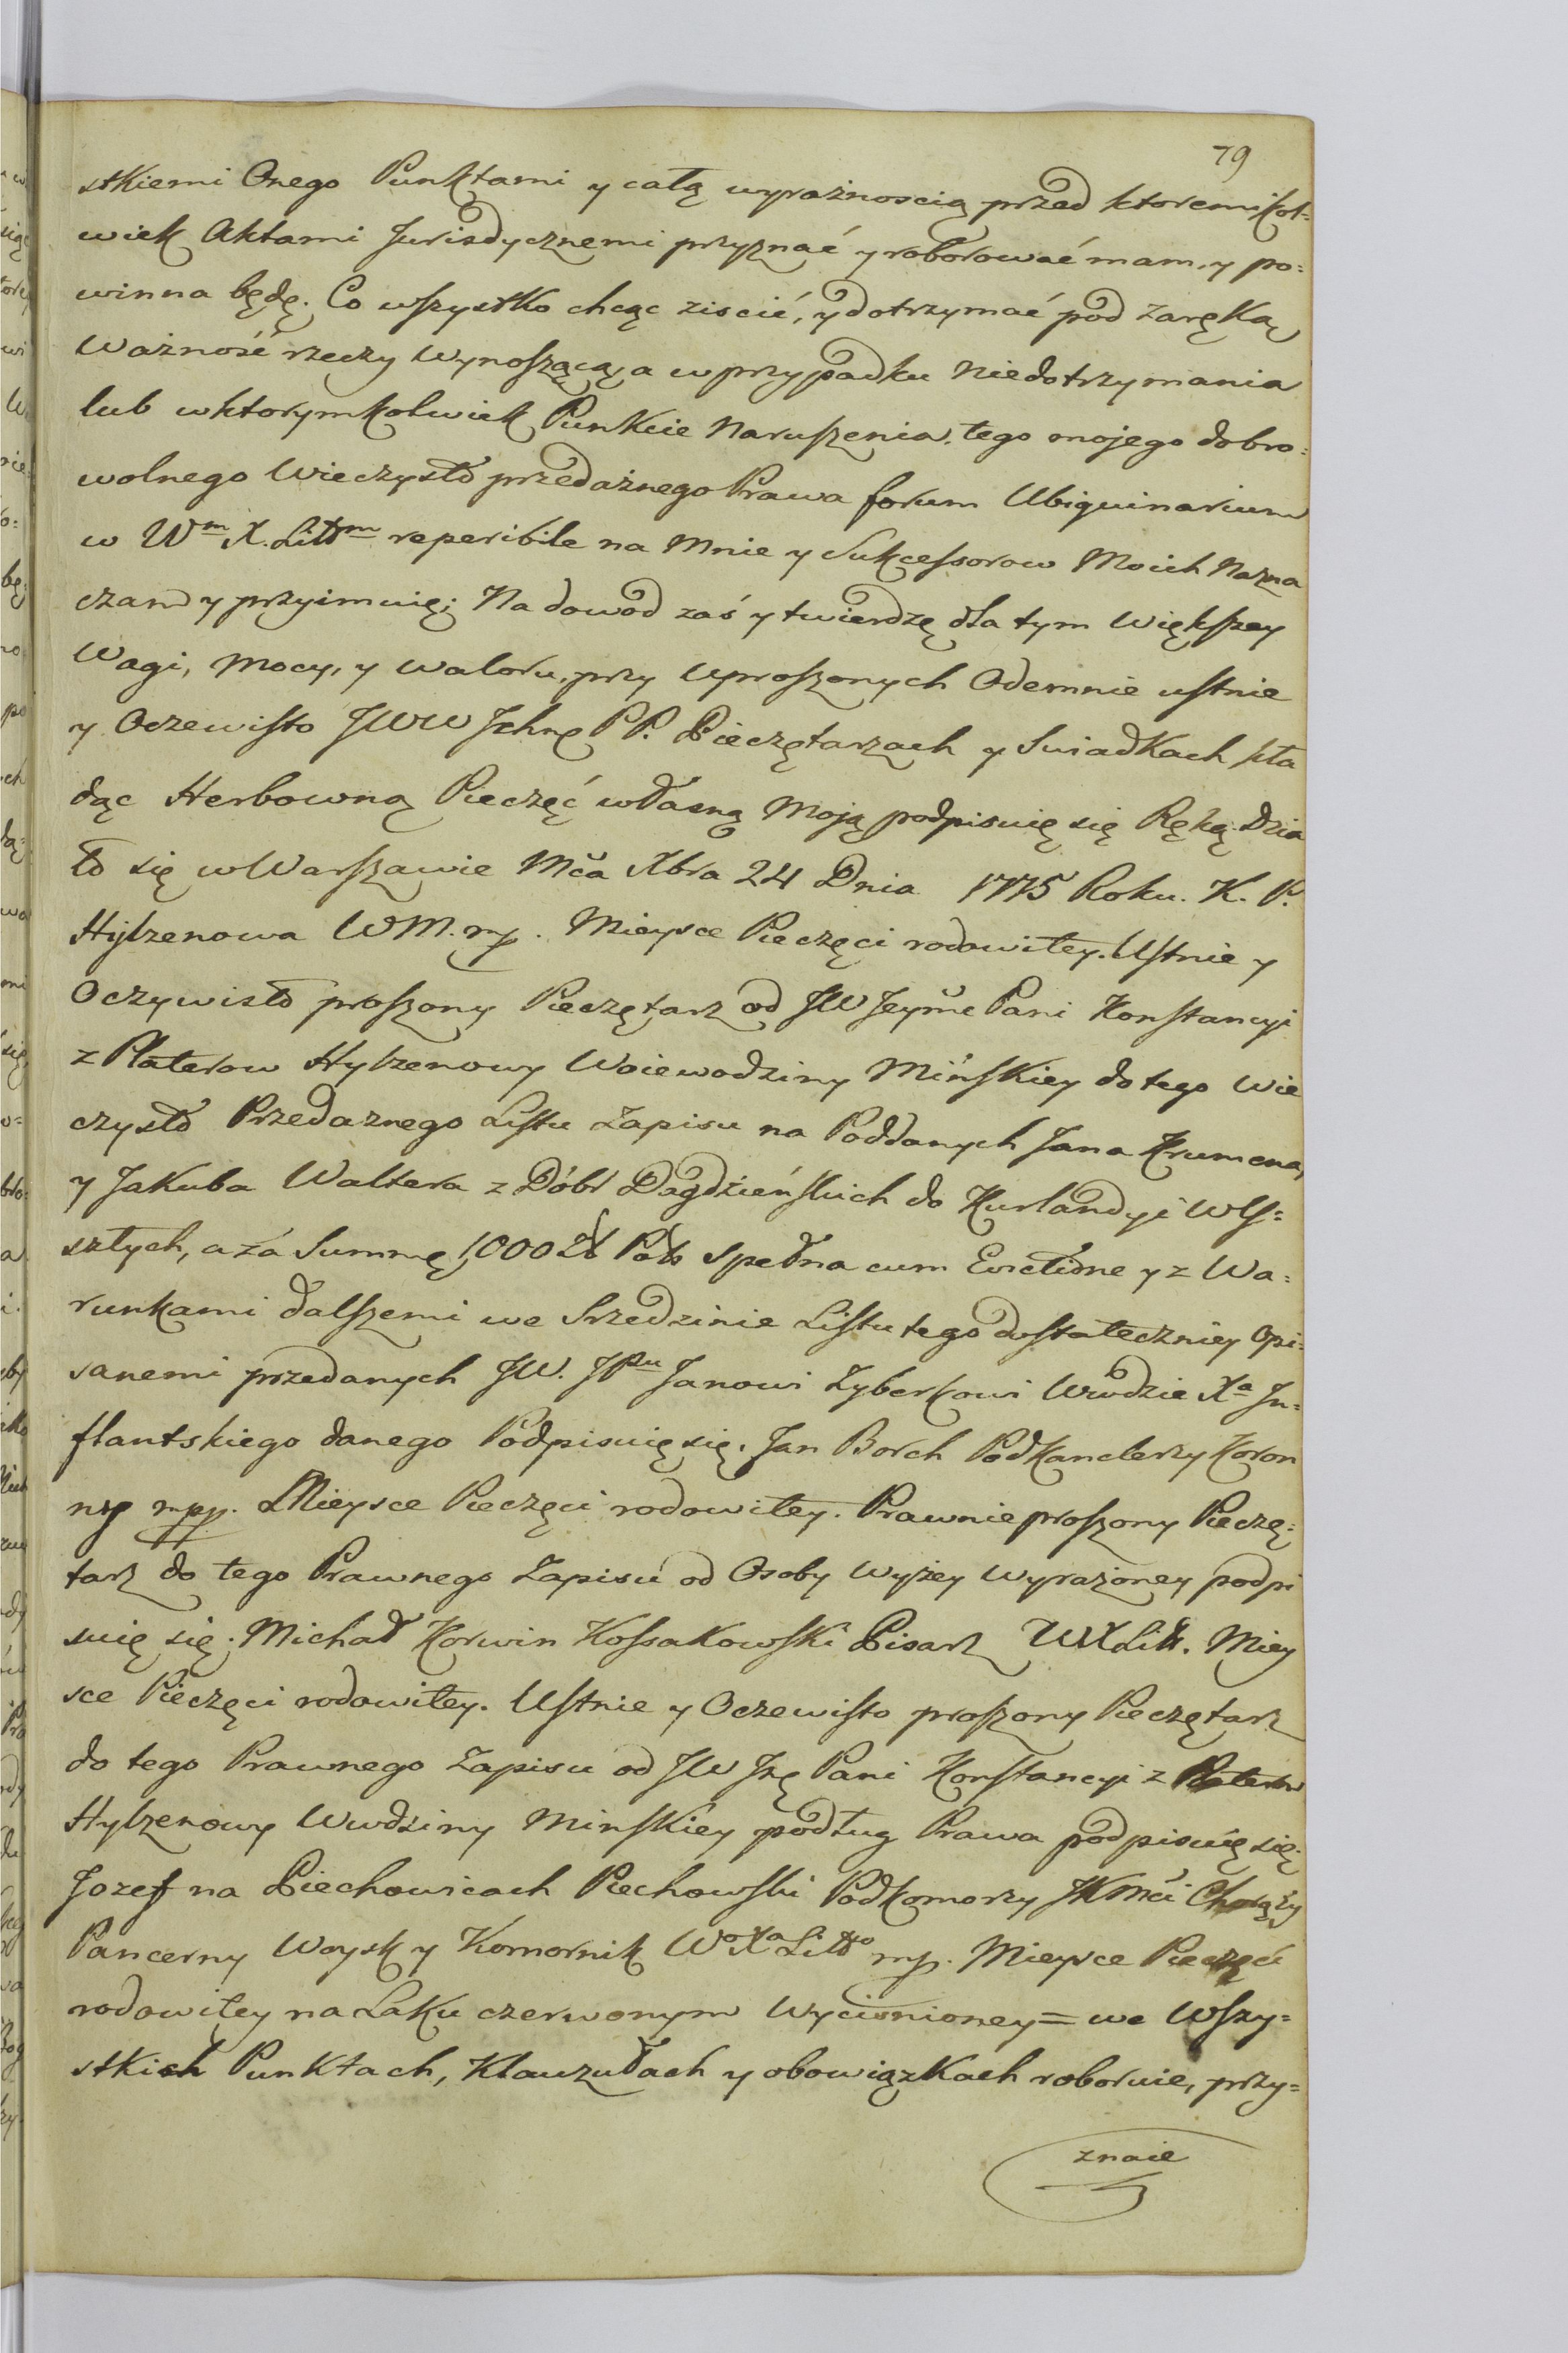 79
stkiemi Onego Punktami y całą wyrażnoscią przed ktoremikol=
wiek Aktami Jurisdycznemi przyznać y roborować mam, y po=
winna będę. Co wszystko chcąc ziscić, y dotrzymać pod zaręką
Ważność rzeczy Wynoszącą, a w przypadku Niedotrzymania
lub w ktorymkolwiek Punkcie Naruszenia, tego mojego dobro=
wolnego Wieczysto przedażnego Prawa forum Ubiquinarium
w Wm X. Littm reperibile na Mnie y Sukcessorow Moich Nazna
czam y przyimuię; Na dowod zaś y twierdzę dla tym Większey
Wagi, Mocy, y Waloru, przy Uproszonych Odemnie ustnie
y Oczewisto JWW Ichmę PP. Pieczętarzach y Swiadkach kła
dąc Herbowną Pieczęć własną Moją podpisuię się Ręką. Dzia
ło się w Warszawie Mča Xbra 24 Dnia 1775 Roku. K. P.
Hylzenowa WM. mp. Mieysce Pieczęci rodowitey. Ustnie y
Oczywisto proszony Pieczętarz od JW Jeymć Pani Konstancyi
z Platerow Hylzenowy Woiewodziny Mińskiey do tego Wie
czysto Przedaznego Listu Zapisu na Poddanych Jana Krumena,
y Jakuba Waltera z Dóbr Dagdzieńskich do Kurlandyi wes=
szłych, a za Summę 1000 Zł Pols spełna cum Evictione y z Wa=
runkami dalszemi we Srzedzinie Listu tego dostateczniey Opi=
sanemi przedanych JW. JPu Janowi Zyberkowi Wwdzie Xa In=
flantskiego danego Podpisuię się. Jan Borch Podkanclerzy Koron
ny mpp. Mieysce Pieczęci rodowitey. Prawnie proszony Pieczę=
tarz do tego Prawnego Zapisu od Osoby wyżey wyrażoney podpi
suię się. Michał Korwin Kossakowski Pisarz WXLitt. Miey
sce Pieczęci rodowitey. Ustnie y Oczewisto proszony Pieczętarz
do tego Prawnego Zapisu od JW Jmę Pani Konstancyi z Platerow
Hylzenowy Wwdziny Minskiey podług Prawa podpisuię się;
Jozef na Piechowicach Piechowski Podkomorzy JKMći Chorąży
Pancerny Woysk y Komornik Wo Xa Litto mp. Mieysce Pieczęci
rodowitey na Laku czerwonym Wycisnioney = we Wszy=
stkich Punktach, Klauzułach y obowiązkach roboruie, przy=
znaie